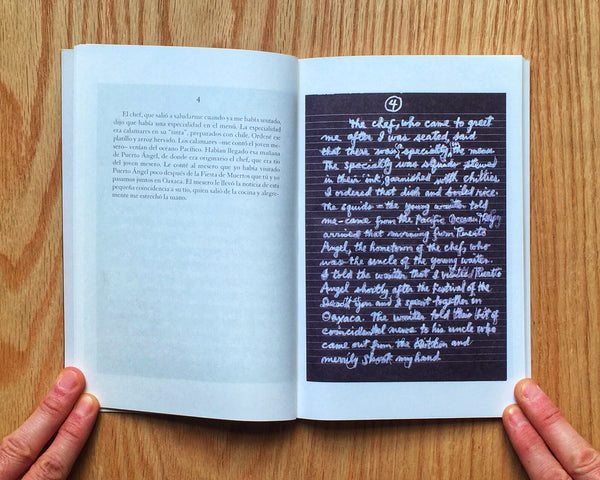 4
El chef, que salió a saludarme cuando ya me había sentado,
dijo que había una especialidad en el menú. La especialidad
era calamares en su "tinta", preparados con chile. Ordené ese
platillo y arroz hervido. Los calamares –me contó el joven me-
sero– venían del océano Pacífico. Habían llegado esa mañana
de Puerto Ángel, de donde era originario el chef, que era tío
del joven mesero. Le conté al mesero que yo había visitado
Puerto Ángel poco después de la Fiesta de Muertos que tú y yo
pasamos juntos en Oaxaca. El mesero le llevó la noticia de esta
pequeña coincidencia a su tío, quien salió de la cocina y alegre-
mente me estrechó la mano.
4
The chef, who came to greet
me after I was seated, said
that there was a "specialty" on the menu.
The specialty was squids stewed
in their "ink", garnished with chilies.
I ordered that dish and boiled rice.
The squids – the young waiter told
me – came from the Pacific Ocean. They
arrived that morning from Puerto
Angel, the hometown of the chef, who
was the uncle of the young waiter.
I told the waiter that I visited Puerto
Angel shortly after the Festival of the
Dead you and I spent together in
Oaxaca. The waiter told this bit of
coincidental news to his uncle who
came out from the kitchen and
merrily shook my hand.